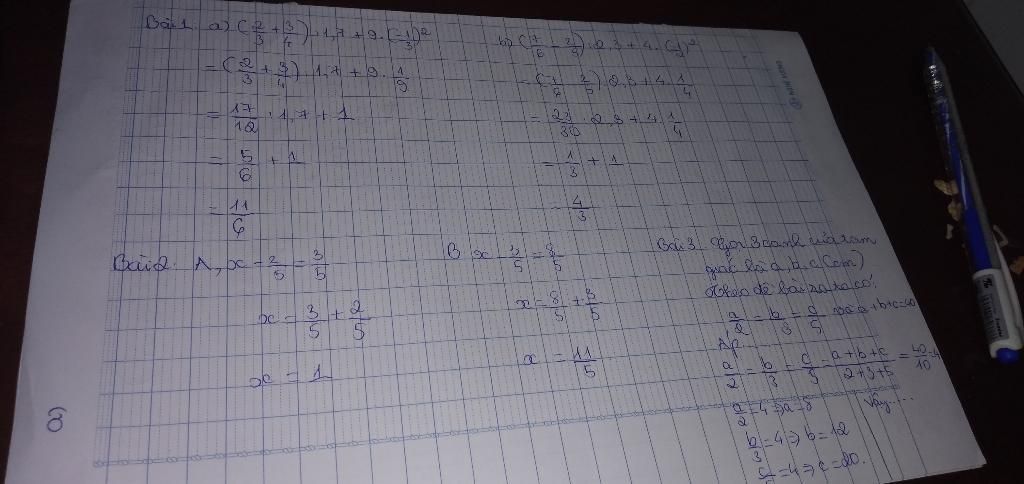 Bài 1. a) (2/3 + 3/4) . 1,7 + 9 . (-1/3)²
= (2/3 + 3/4) . 1,7 + 9 . 1/9
= 17/12 . 1,7 + 1
= 5/6 + 1
= 11/6
= 23/30 . 2,3 + 4 . 1/4
= 1/3 + 1
= 4/3
Bài 2. A, x - 2/5 = 3/5
x = 3/5 + 2/5
x = 1
B x - 3/5 = 8/5
x = 8/5 + 3/5
x = 11/5
Bài 3. Gọi 3 cạnh của tam
giác là a, b, c (cm)
Theo đề bài ra ta có:
a/2 = b/3 = c/5 và a + b + c = 40
Áp
a/2 = b/3 = c/5 = a+b+c/2+3+5 = 40/10 = 4
a/2 = 4 => a = 8
b/3 = 4 => b = 12
c/5 = 4 => c = 20.
Vậy....